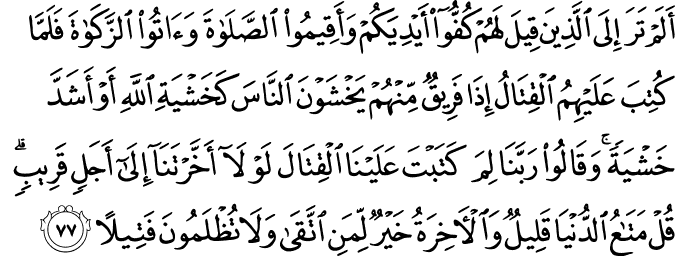 أَلَمْ تَرَ إِلَى ٱلَّذِينَ قِيلَ لَهُمْ كُفُّوٓا۟ أَيْدِيَكُمْ وَأَقِيمُوا۟ ٱلصَّلَوٰةَ وَءَاتُوا۟ ٱلزَّكَوٰةَ فَلَمَّا
كُتِبَ عَلَيْهِمُ ٱلْقِتَالُ إِذَا فَرِيقٌ مِّنْهُمْ يَخْشَوْنَ ٱلنَّاسَ كَخَشْيَةِ ٱللَّهِ أَوْ أَشَدَّ
خَشْيَةً ۚ وَقَالُوا۟ رَبَّنَا لِمَ كَتَبْتَ عَلَيْنَا ٱلْقِتَالَ لَوْلَآ أَخَّرْتَنَآ إِلَىٰٓ أَجَلٍ قَرِيبٍ ۗ
قُلْ مَتَـٰعُ ٱلدُّنْيَا قَلِيلٌ وَٱلْـَٔاخِرَةُ خَيْرٌ لِّمَنِ ٱتَّقَىٰ وَلَا تُظْلَمُونَ فَتِيلًا ٧٧